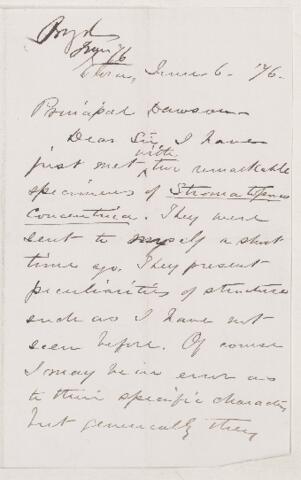 June 6 - '76.
Principal Dawson
Dear Sir, I have
just met with two remarkable
specimens of
Concentrica. They were
sent to myself a short
time ago. They present
peculiarities of structure
such as I have not
seen before. Of course
I may be in error as
to their specific character
but generically they